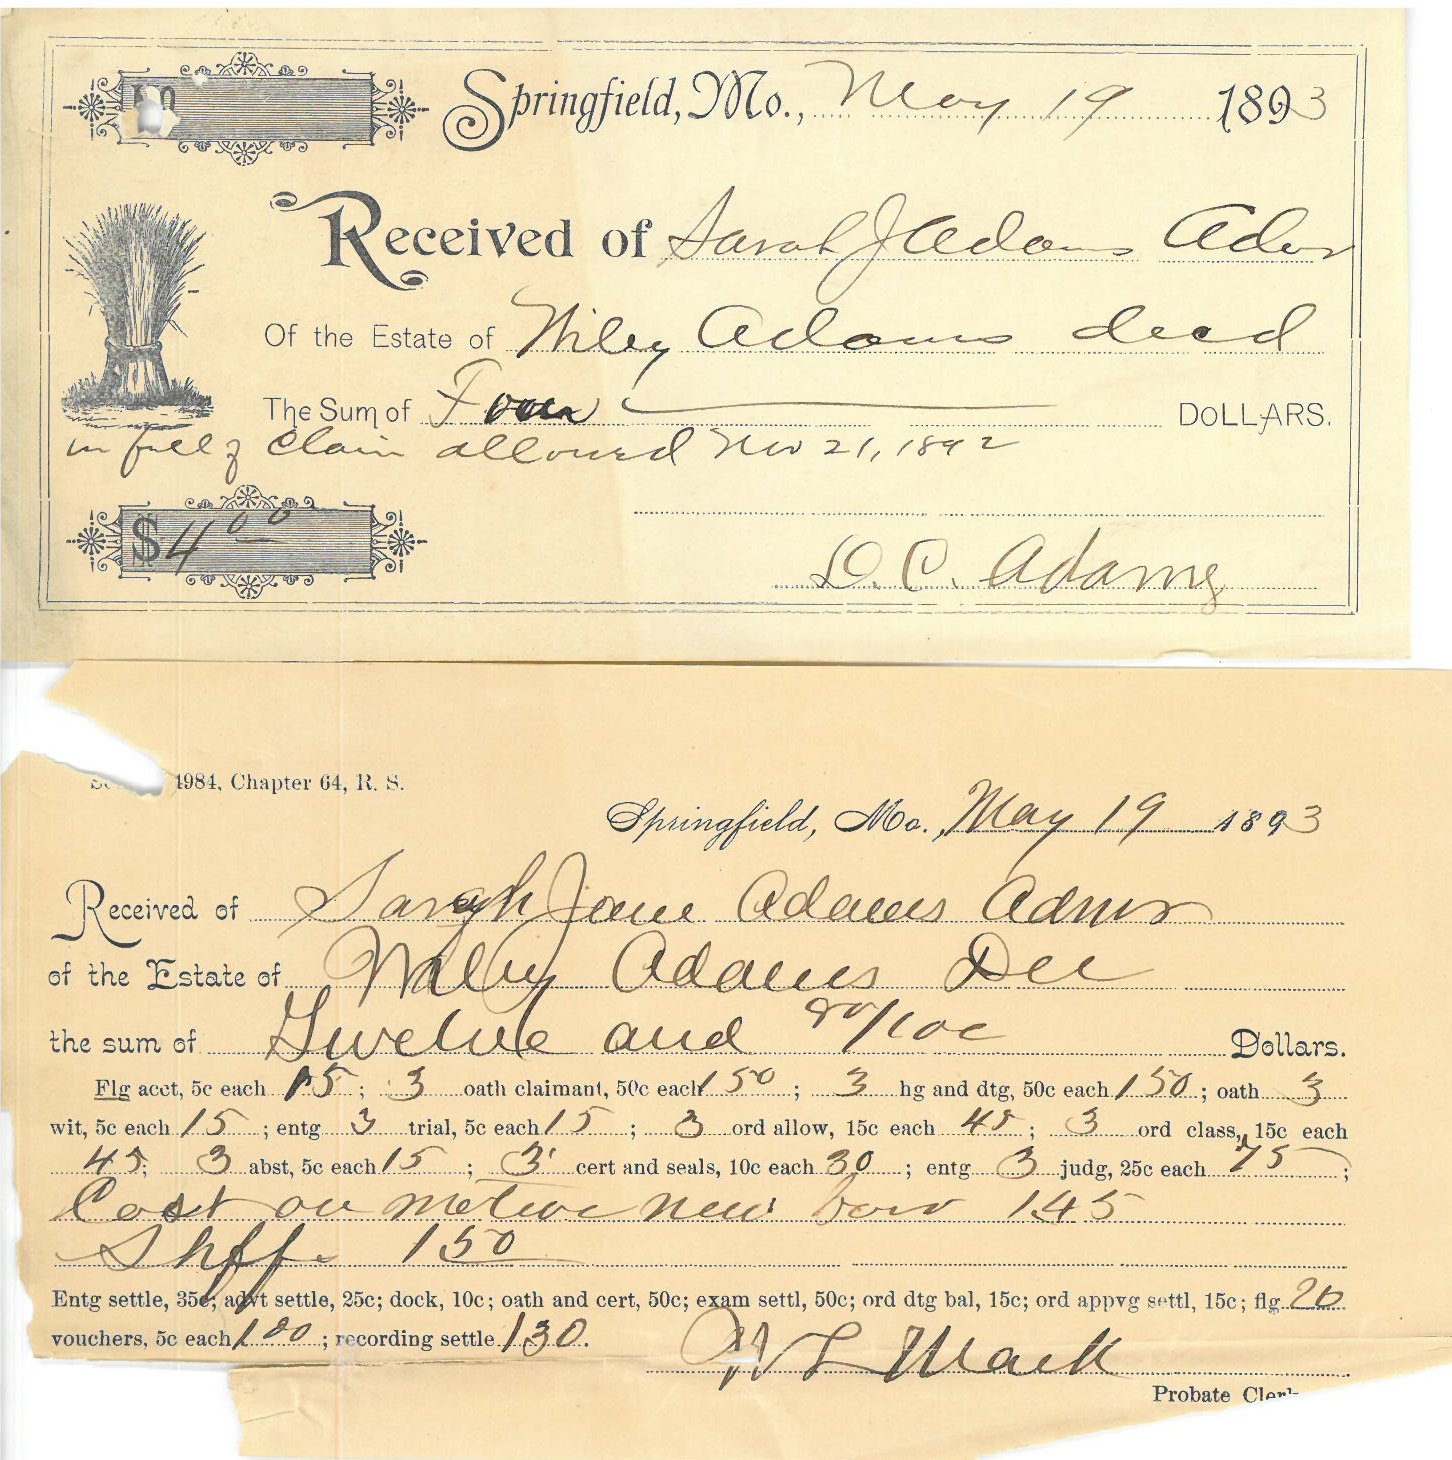 Springfield, Mo., May 19 1893
Received of Sarah J Adams Admr
Of the Estate of Wiley Adams decd
The Sum of Four DOLLARS.
in full of claim allowed Nov 21, 1892
$4.00
D. C. Adams
1984, Chapter 64, R. S.
Springfield, Mo., May 19 1893
Received of Sarah Jane Adams Admr
of the Estate of Wiley Adams Dec
the sum of Twelve and 80/100 Dollars.
Flg acct, 5c each 15; 3 oath claimant, 50c each 150; 3 hg and dtg, 50c each 150; oath 3
wit, 5c each 15; entg 3 trial, 5c each 15; 3 ord allow, 15c each 45; 3 ord class, 15c each
45; 3 abst, 5c each 15; 3 cert and seals, 10c each 30; entg 3 judg, 25c each 75;
Cost on motion new 145
Shff. 150
Entg settle, 35c; advt settle, 25c; dock, 10c; oath and cert, 50c; exam settl, 50c; ord dtg bal, 15c; ord appvg settl, 15c; flg 20
vouchers, 5c each 100; recording settle 130.
W L Mack
Probate Clerk